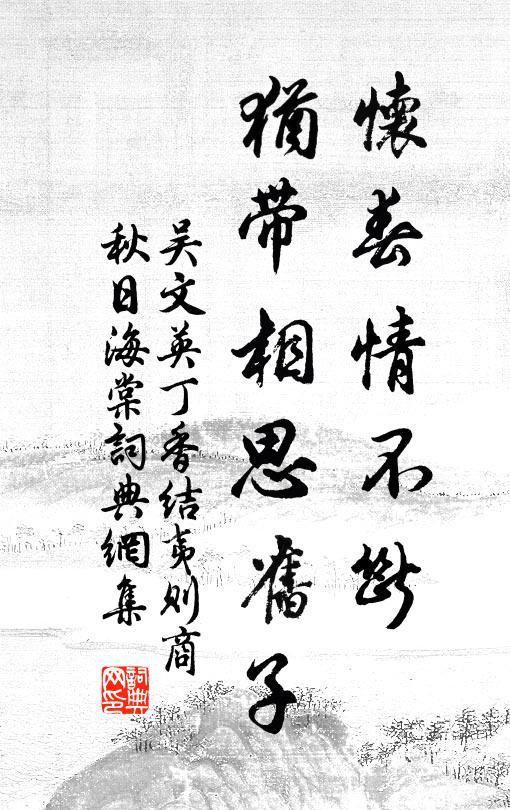 懷春情不斷
猶帶相思舊子
吴文英丁香结夷则商
秋日海棠詞典網集
詞典网印